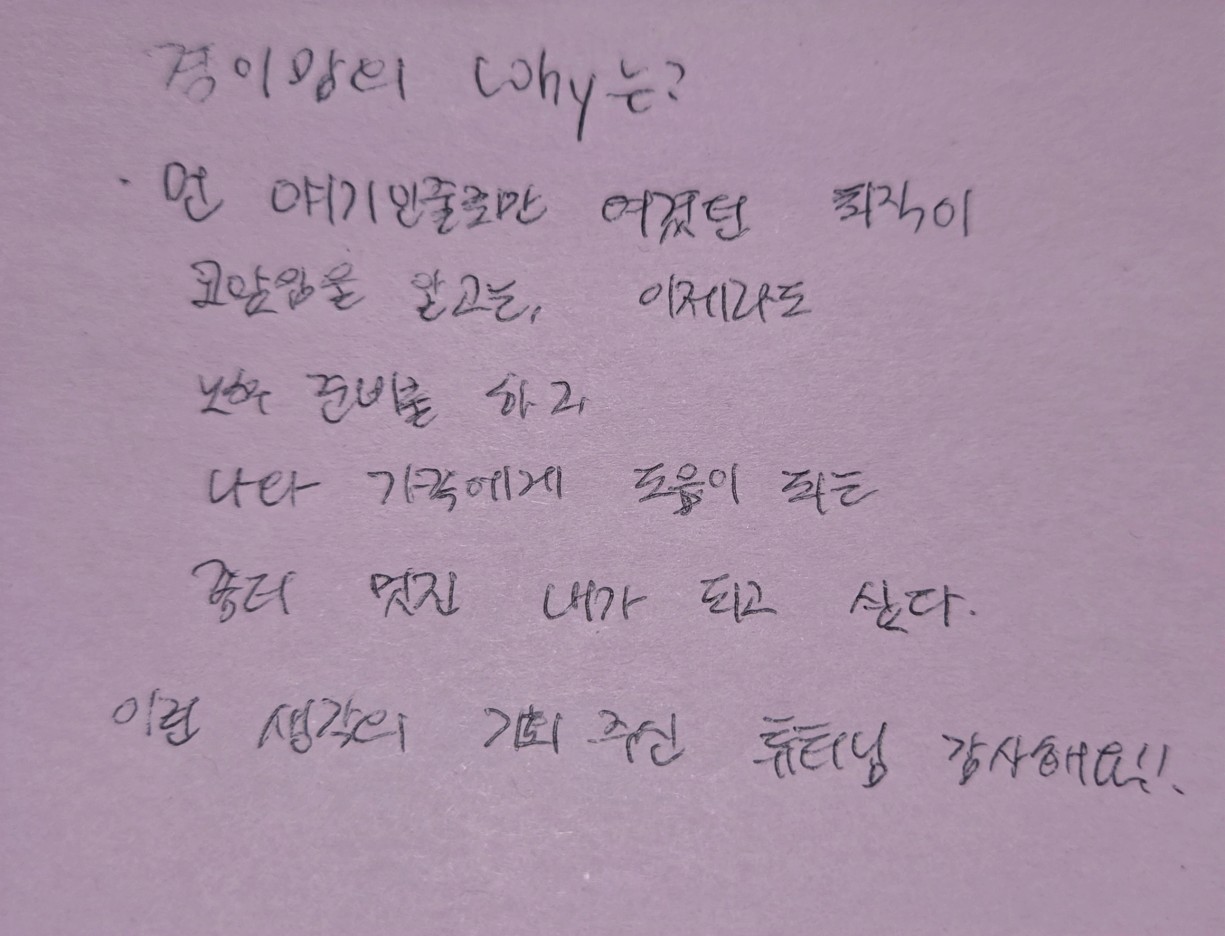 경이맘의 Why는?
· 먼 얘기인줄로만 여겼던 퇴직이
코앞임을 알고는, 이제라도
노후 준비를 하고
나와 가족에게 도움이 되는
좀더 멋진 내가 되고 싶다.
이런 생각의 기회 주신 튜터님 감사해요!!